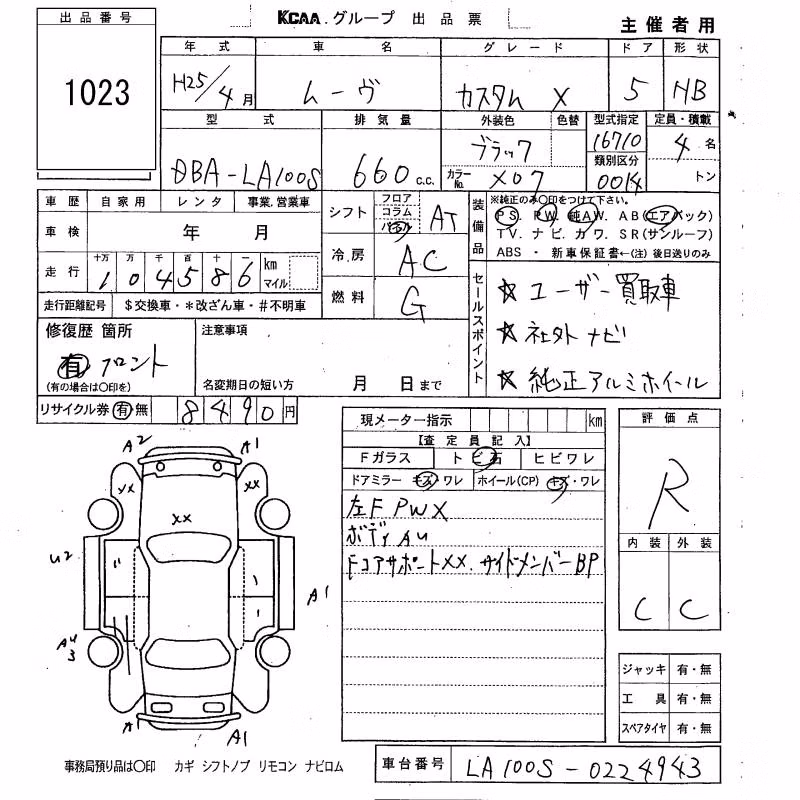 出品番号
1023
KCAA.グループ 出品票
主催者用
年式 車名 グレード ドア 形状
H25/4月 ムーヴ カスタム X 5 HB
型式 排気量 外装色 色替 型式指定 定員・積載
DBA-LA100S 660 c.c. ブラック 16710 4名
カラーNo. X07 類別区分 0014 トン
車歴 自家用 レンタ 事業.営業車
車検 年 月
走行 十万 万 千 百 十 一
104586 km マイル
走行距離記号 $交換車・*改ざん車・#不明車
シフト フロア コラム パネル AT
冷房 AC
燃料 G
装備品
※純正のみ〇印をつけて下さい。
PS. PW. 純AW. AB(エアバック)
TV. ナビ. カワ. SR(サンルーフ)
ABS ・ 新車保証書←(注) 後日送りのみ
セールスポイント
☆ ユーザー買取車
☆ 社外ナビ
☆ 純正アルミホイール
修復歴 箇所
有 フロント
(有の場合は〇印を)
注意事項
名変期日の短い方 月 日まで
リサイクル券 有 無 8490円
現メーター指示 km
【査定員記入】
Fガラス トビ石 ヒビワレ
ドアミラー キズ・ワレ ホイール(CP) キズ・ワレ
左F PW X
ボディAU
Fコアサポート XX. サイドメンバーBP
評価点
R
内装 外装
C C
A2 A1
XX XX
XX
U2
A1
AU
3
A1 A1
ジャッキ 有・無
工具 有・無
スペアタイヤ 有・無
事務局預り品は〇印 カギ シフトノブ リモコン ナビロム
車台番号 LA100S-0224943